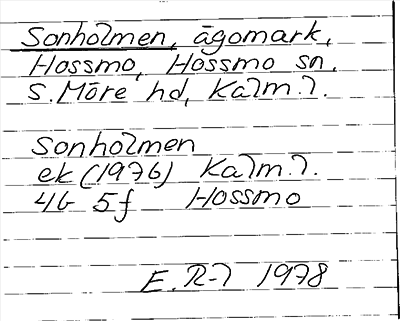 Sonholmen, ägomark,
Hossmo, Hossmo sn,
S. Möre hd, Kalm. l.
Sonholmen
ek (1976) Kalm. l.
4G 5f Hossmo
E. R-l 1978